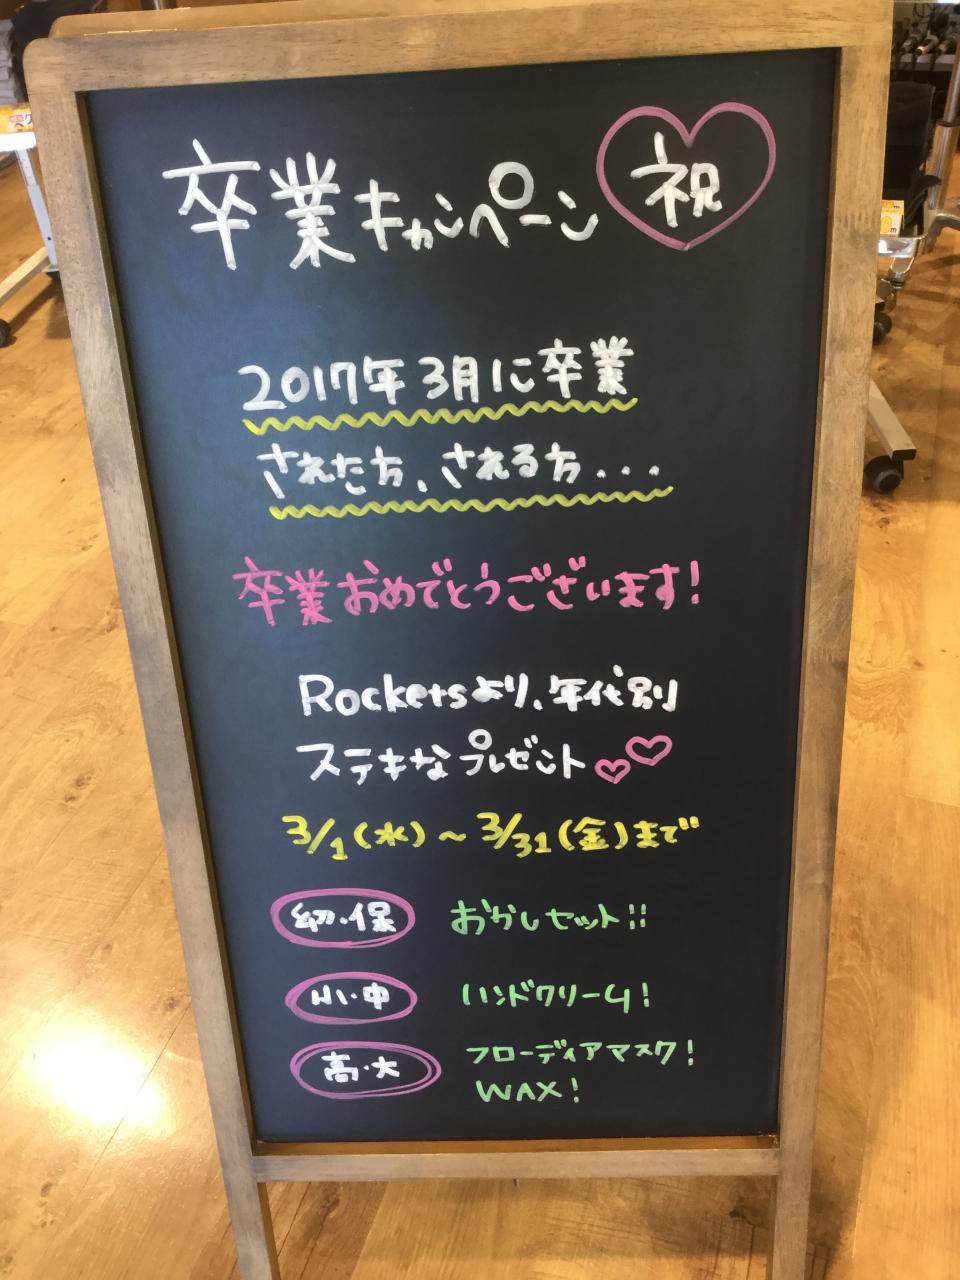 卒業キャンペーン 祝
2017年3月に卒業
された方、される方...
卒業おめでとうございます!
Rocketsより、年代別
ステキなプレゼント
3/1(水)~3/31(金)まで
幼・保 おかしセット!!
小・中 ハンドクリーム!
高・大 フローディアマスク!
WAX!